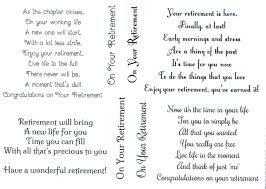 As the chapter closes,
On your working life
A new one will start,
With a lot less strife.
Enjoy your retirement,
Live life to the full
There never will be,
A moment that's dull!
Congratulations on Your Retirement
Retirement will bring
A new life for you
Time you can fill
With all that's precious to you
Have a wonderful retirement!
On Your Retirement
On Your Retirement
On Your Retirement
On Your Retirement
Your retirement is here.
Finally, at last!
Early mornings and stress
Are a thing of the past
It's time for you now
To do the things that you love
Enjoy your retirement, you've earned it!
Now it's the time in your life
For you to simply be
All that you wanted
You really are free
Live life in the moment
And think of just 'me'
Congratulations on your retirement